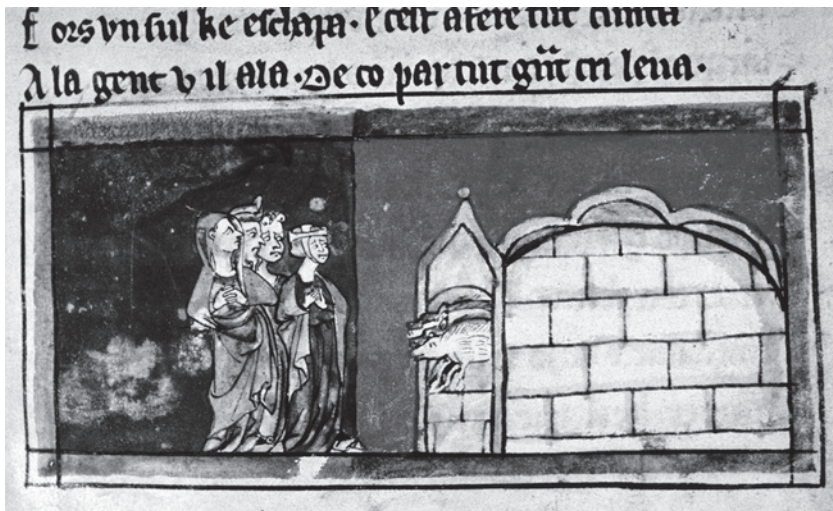 F ors vn sul ke eschapa · E cest afere tut cunta
A la gent v il ala · De co par tut gñt cri leua ·